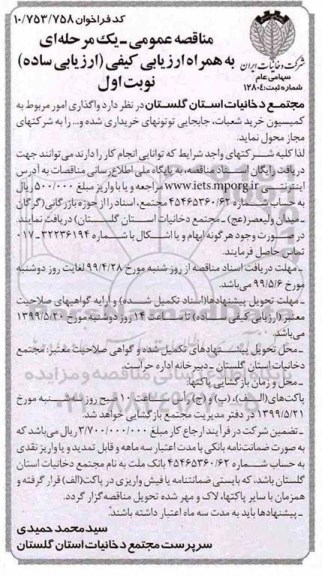 کد فراخوان ۱۰/۷۵۳/۷۵۸
شرکت دخانیات ایران
سهامی عام
شماره ثبت: ۱۲۸۰۴
مناقصه عمومی - یک مرحله‌ای
به همراه ارزیابی کیفی (ارزیابی ساده)
نوبت اول
مجتمع دخانیات استان گلستان در نظر دارد واگذاری امور مربوط به
کمیسیون خرید شعبات، جابجایی توتونهای خریداری شده و... را به شرکتهای
مجاز محول نماید.
لذا کلیه شرکتهای واجد شرایط که توانایی انجام کار را دارند می‌توانند جهت
دریافت رایگان اسناد مناقصه، به پایگاه ملی اطلاع‌رسانی مناقصات به آدرس
اینترنتی www.iets.mporg.ir مراجعه و یا با واریز مبلغ ۵۰۰/۰۰۰ ریال
به حساب شماره ۴۵۴۶۵۳۶۰/۶۲ مجتمع، اسناد را از حوزه بازرگانی (گرگان
- میدان ولیعصر (عج) - مجتمع دخانیات استان گلستان) دریافت نمایند.
در صورت وجود هرگونه ابهام و یا اشکال با شماره ۳۲۲۳۶۱۹۴ - ۰۱۷
تماس حاصل فرمایند.
- مهلت دریافت اسناد مناقصه از روز شنبه مورخ ۹۹/۴/۲۸ لغایت روز دوشنبه
مورخ ۹۹/۵/۶ می‌باشد.
- مهلت تحویل پیشنهادها (اسناد تکمیل شده) و ارایه گواهیهای صلاحیت
معتبر (ارزیابی کیفی ساده) تا ساعت ۱۴ روز دوشنبه مورخ ۱۳۹۹/۵/۲۰
می‌باشد.
- محل تحویل پیشنهادهای تکمیل شده و گواهی صلاحیت معتبر: مجتمع
دخانیات استان گلستان - دبیرخانه اداره حراست
- محل و زمان بازگشایی پاکتها:
پاکت‌های (الف)، (ب) و (ج) رأس ساعت ۱۰ صبح روز سه‌شنبه مورخ
۱۳۹۹/۵/۲۱ در دفتر مدیریت مجتمع بازگشایی خواهد شد.
- تضمین شرکت در فرآیند ارجاع کار مبلغ ۳/۷۰۰/۰۰۰/۰۰۰ ریال می‌باشد که
به صورت ضمانت‌نامه بانکی با مدت اعتبار سه ماهه و قابل تمدید و یا واریز نقدی
به حساب شماره ۴۵۴۶۵۳۶۰/۶۲ بانک ملت به نام مجتمع دخانیات استان
گلستان باشد، که بایستی ضمانتنامه یا فیش واریزی در پاکت (الف) قرار گرفته و
همزمان با سایر پاکتها، لاک و مهر شده تحویل مناقصه‌گزار گردد.
- پیشنهادها باید به مدت سه ماه اعتبار داشته باشند.
سید محمد حمیدی
سرپرست مجتمع دخانیات استان گلستان